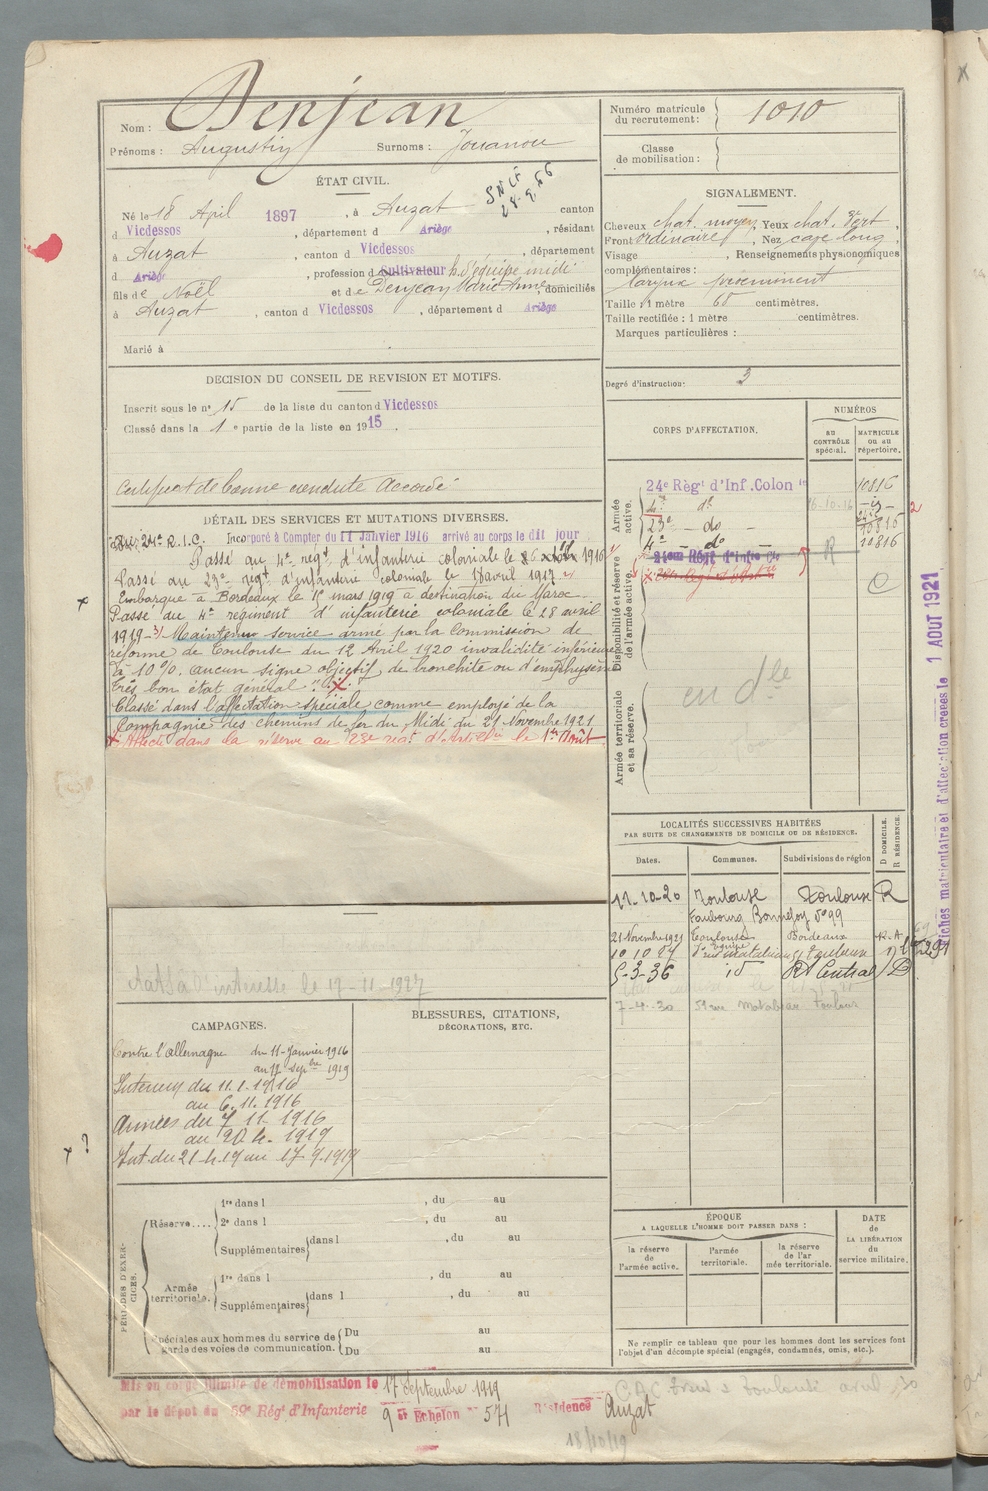 Nom : Denjean
Prénoms : Augustin Surnoms : Jouanou
Numéro matricule du recrutement : 1010
Classe de mobilisation :
ÉTAT CIVIL.
Né le 18 April 1897, à Auzat canton
d Vicdessos, département d Ariège, résidant
à Auzat, canton d Vicdessos, département
d Ariège, profession d cultivateur h. d'équipe midi
fils de Noël et de Denjean Marie Anne, domiciliés
à Auzat, canton d Vicdessos, département d Ariège
Marié à
SIGNALEMENT.
Cheveux chat. moyen, Yeux chat. vert,
Front ordinaire, Nez long,
Visage , Renseignements physionomiques
complémentaires :
larynx proeminent
Taille : 1 mètre 60 centimètres.
Taille rectifiée : 1 mètre centimètres.
Marques particulières :
Degré d'instruction : 3
DECISION DU CONSEIL DE REVISION ET MOTIFS.
Inscrit sous le n° 15 de la liste du canton d Vicdessos
Classé dans la 1e partie de la liste en 1915.
Certificat de bonne conduite Accordé
CORPS D'AFFECTATION.
NUMÉROS
AU CONTRÔLE spécial.
MATRICULE ou au répertoire.
Armée active.
24e Régt d'Inf. Colon le 10816
4e do 16-10-16
23e do
4e do R 10816
Disponibilité et réserve de l'armée active.
Armée territoriale et sa réserve.
DÉTAIL DES SERVICES ET MUTATIONS DIVERSES.
Au 24e R.I.C. Incorporé à Compter du 11 Janvier 1916 arrivé au corps le dit jour
Passé au 4e regt d'infanterie coloniale le 1916
Passé au 23e regt d'infanterie coloniale le 1917
Embarqué à Bordeaux le 1r mars 1919 à destination du Maroc
Passé du 4e régiment d'infanterie coloniale le 28 avril
1919 - Maintenu service armé par la Commission de
réforme de Toulouse du 12 Avril 1920 invalidité inférieure
à 10 %. aucun signe objectif de bronchite ou d'emphysème
très bon état général".
Classé dans l'affectation spéciale comme employé de la
Compagnie des chemins de fer du Midi du 21 Novembre 1921
Affecté dans la réserve au 23e régt d'Artelie le 1er Août
Fiches matriculaire et d'affectation créées le 1 AOUT 1921
LOCALITÉS SUCCESSIVES HABITÉES
PAR SUITE DE CHANGEMENTS DE DOMICILE OU DE RÉSIDENCE.
Dates. Communes. Subdivisions de région D DOMICILE. R RÉSIDENCE.
11-10-20 Toulouse Toulouse R
Faubourg Bonnefoy n° 99
21 Novembre 1921 Toulouse Bordeaux R.A
10 10 27 Toulouse
5-3-36 id Rt Central D
7-4-30
à l'intéressé le 19-11-1927
CAMPAGNES.
Contre l'Allemagne du 11-Janvier 1916
au 17 sepbre 1919
Intérieur du 11.1.1916
au 6.11.1916
Armées du 7 11 1916
au 20 4. 1919
Int. du 21.4.19 au 17-9.1919
BLESSURES, CITATIONS,
DÉCORATIONS, ETC.
PÉRIODES D'EXERCICES.
Réserve.... 1re dans l , du au
2e dans l , du au
Supplémentaires dans l , du au
Armée territoriale. 1re dans l , du au
Supplémentaires dans l , du au
Spéciales aux hommes du service de garde des voies de communication. Du au
Du au
ÉPOQUE
A LAQUELLE L'HOMME DOIT PASSER DANS :
la réserve de l'armée active. l'armée territoriale. la réserve de l'armée territoriale.
DATE de LA LIBÉRATION du service militaire.
Ne remplir ce tableau que pour les hommes dont les services font
l'objet d'un décompte spécial (engagés, condamnés, omis, etc.).
Mis en congé illimité de démobilisation le 17 Septembre 1919
par le dépot du 59e Régt d'Infanterie 9 Echelon n° 571 Résidence Auzat
18/10/19